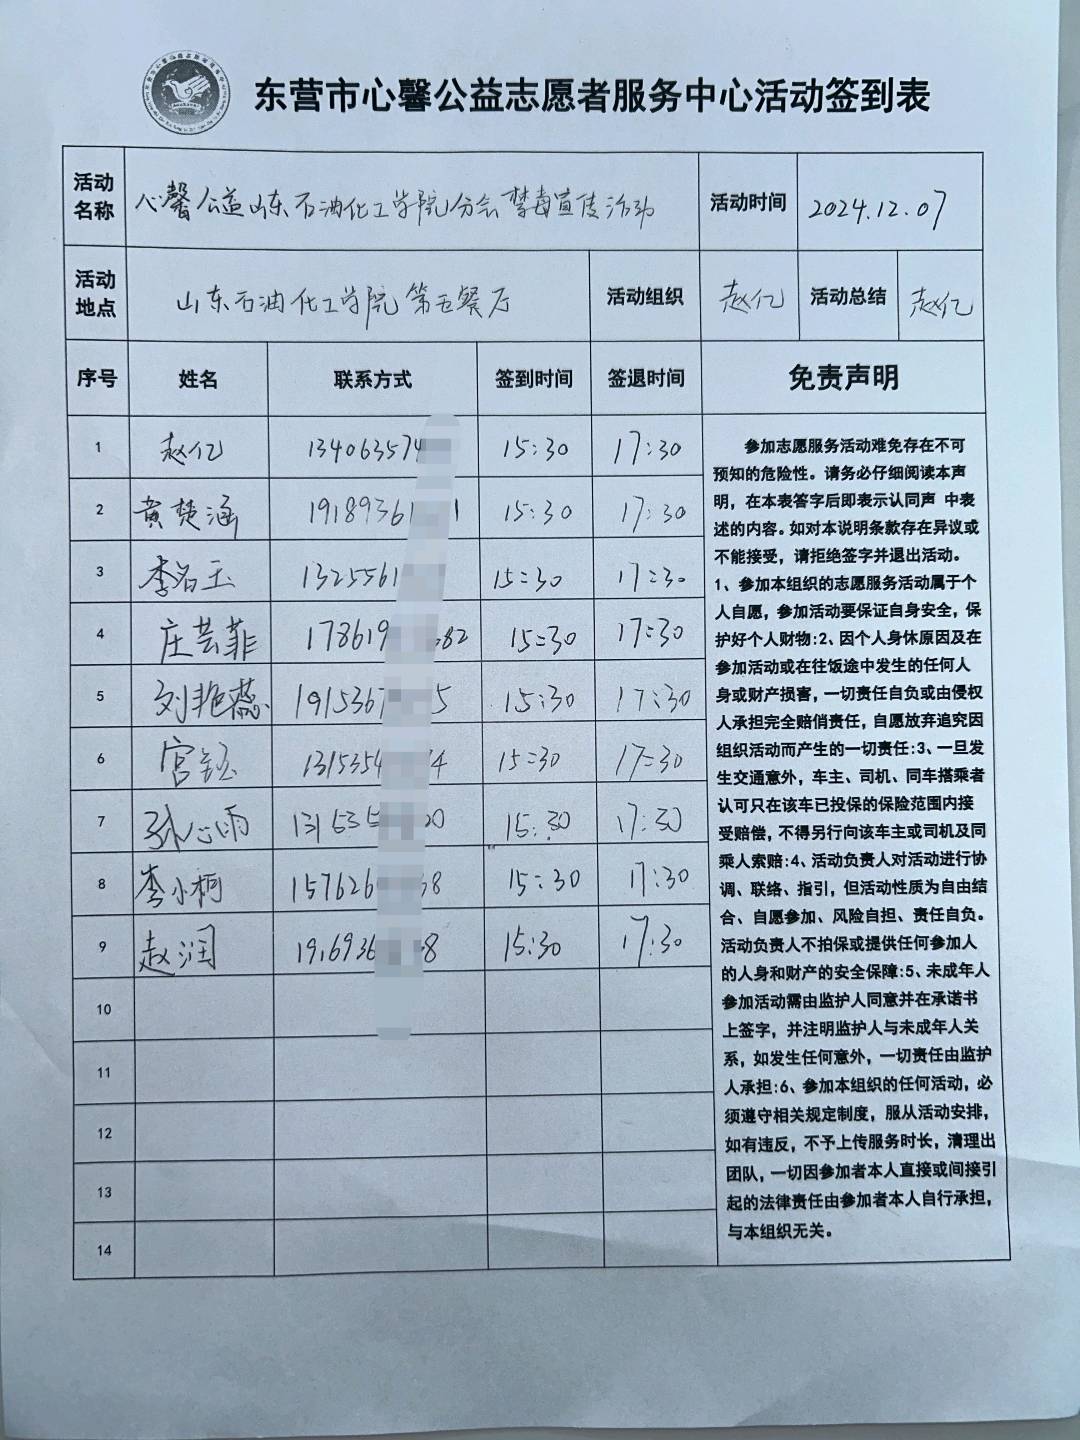 东营市心馨公益志愿者服务中心活动签到表
活动名称 心馨公益山东石油化工学院分会禁毒宣传活动 活动时间 2024.12.07
活动地点 山东石油化工学院第五餐厅 活动组织 赵亿 活动总结 赵亿
序号 姓名 联系方式 签到时间 签退时间 免责声明
1 赵亿 134063574 15:30 17:30
2 黄楚涵 19189361 1 15:30 17:30
3 李名玉 1325561 15:30 17:30
4 庄芸菲 178619 82 15:30 17:30
5 刘艳蕊 1915367 5 15:30 17:30
6 宫钰 1315354 4 15:30 17:30
7 孙心雨 131535 20 15:30 17:30
8 李小桐 157626 38 15:30 17:30
9 赵润 1916936 8 15:30 17:30
10
11
12
13
14
参加志愿服务活动难免存在不可
预知的危险性。请务必仔细阅读本声
明，在本表答字后即表示认同声 中表
述的内容。如对本说明条款存在异议或
不能接受，请拒绝签字并退出活动。
1、参加本组织的志愿服务活动属于个
人自愿，参加活动要保证自身安全，保
护好个人财物:2、因个人身休原因及在
参加活动或在往饭途中发生的任何人
身或财产损害，一切责任自负或由侵权
人承担完全赔俏责任，自愿放弃追究因
组织活动而产生的一切责任:3、一旦发
生交通意外，车主、司机、同车搭乘者
认可只在该车已投保的保险范围内接
受赔偿，不得另行向该车主或司机及同
乘人索赔:4、活动负责人对活动进行协
调、联络、指引，但活动性质为自由结
合、自愿参加、风险自担、责任自负。
活动负责人不拍保或提供任何参加人
的人身和财产的安全保障:5、未成年人
参加活动需由监护人同意并在承诺书
上签字，并注明监护人与未成年人关
系，如发生任何意外，一切责任由监护
人承担:6、参加本组织的任何活动，必
须遵守相关规定制度，服从活动安排，
如有违反，不予上传服务时长，清理出
团队，一切因参加者本人直接或间接引
起的法律责任由参加者本人自行承担，
与本组织无关。